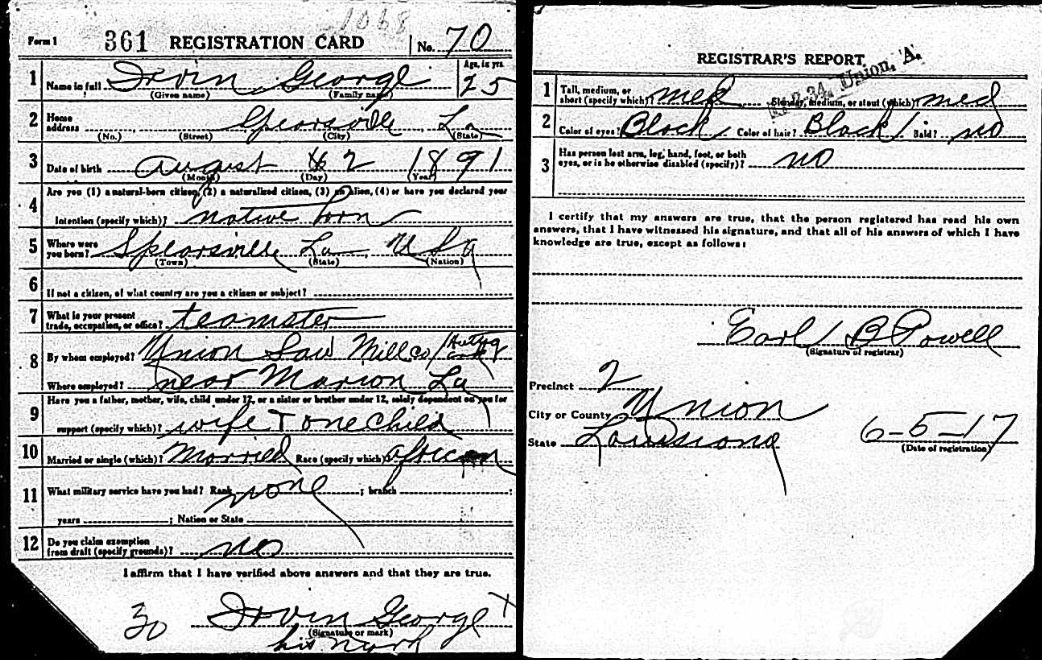 1068
Form 1 361 REGISTRATION CARD No. 70
1 Name in full Irvin George Age, in yrs. 25
(Given name) (Family name)
2 Home address Spearsville La
(No.) (Street) (City) (State)
3 Date of birth August 2 1891
(Month) (Day) (Year)
4 Are you (1) a natural-born citizen, (2) a naturalized citizen, (3) an alien, (4) or have you declared your
intention (specify which)? native born
5 Where were you born? Spearsville La USA
(Town) (State) (Nation)
6 If not a citizen, of what country are you a citizen or subject?
7 What is your present trade, occupation, or office? teamster
8 By whom employed? Union Saw Mill co
Where employed? near Marion La
9 Have you a father, mother, wife, child under 12, or a sister or brother under 12, solely dependent on you for
support (specify which)? wife & one child
10 Married or single (which)? Married Race (specify which)? african
11 What military service have you had? Rank none ; branch ;
years ; Nation or State
12 Do you claim exemption from draft (specify grounds)? no
I affirm that I have verified above answers and that they are true.
30 Irvin George x
(Signature or mark)
his mark
REGISTRAR'S REPORT
Union, A.
1 Tall, medium, or short (specify which)? med Slender, medium, or stout (which)? med
2 Color of eyes? Black Color of hair? Black Bald? no
3 Has person lost arm, leg, hand, foot, or both
eyes, or is he otherwise disabled (specify)? no
I certify that my answers are true, that the person registered has read his own
answers, that I have witnessed his signature, and that all of his answers of which I have
knowledge are true, except as follows:
Earl B Powell
(Signature of registrar)
Precinct 2
City or County Union
State Louisiana 6-5-17
(Date of registration)